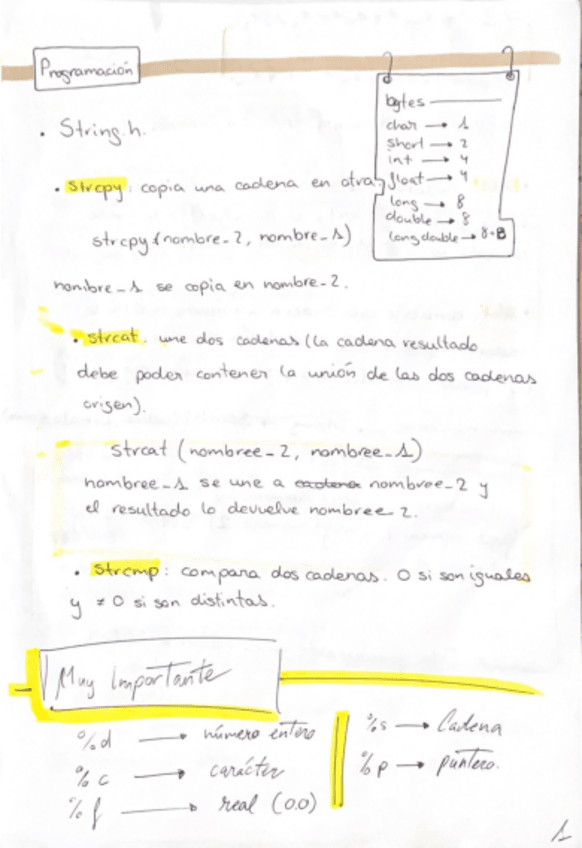 Programación
bytes
char → 1
short → 2
int → 4
float → 4
long → 8
double → 8
long double → 8
• String.h.
• strcpy: copia una cadena en otra,
strcpy (nombre_2, nombre_1)
nombre_1 se copia en nombre_2.
• strcat. une dos cadenas (la cadena resultado
debe poder contener la unión de las dos cadenas
origen).
strcat (nombree_2, nombree_1)
nombree_1 se une a cadena nombree_2 y
el resultado lo devuelve nombree_2.
• strcmp: compara dos cadenas. 0 si son iguales
y ≠ 0 si son distintas.
Muy Importante
%d → número entero
%c → carácter
%f → real (0.0)
%s → Cadena
%p → puntero.
1